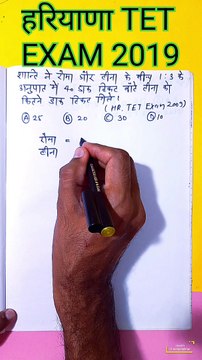 हरियाणा TET
EXAM 2019
शान्ति ने रोमा और टीना के बीच 1:3 के
अनुपात में 40 डाक टिकट बांटे टीना को
कितने डाक टिकट मिले।
(HR. TET Exam 2009)
Ⓐ 25 Ⓑ 20 Ⓒ 30 Ⓓ 10
रोमा =
टीना